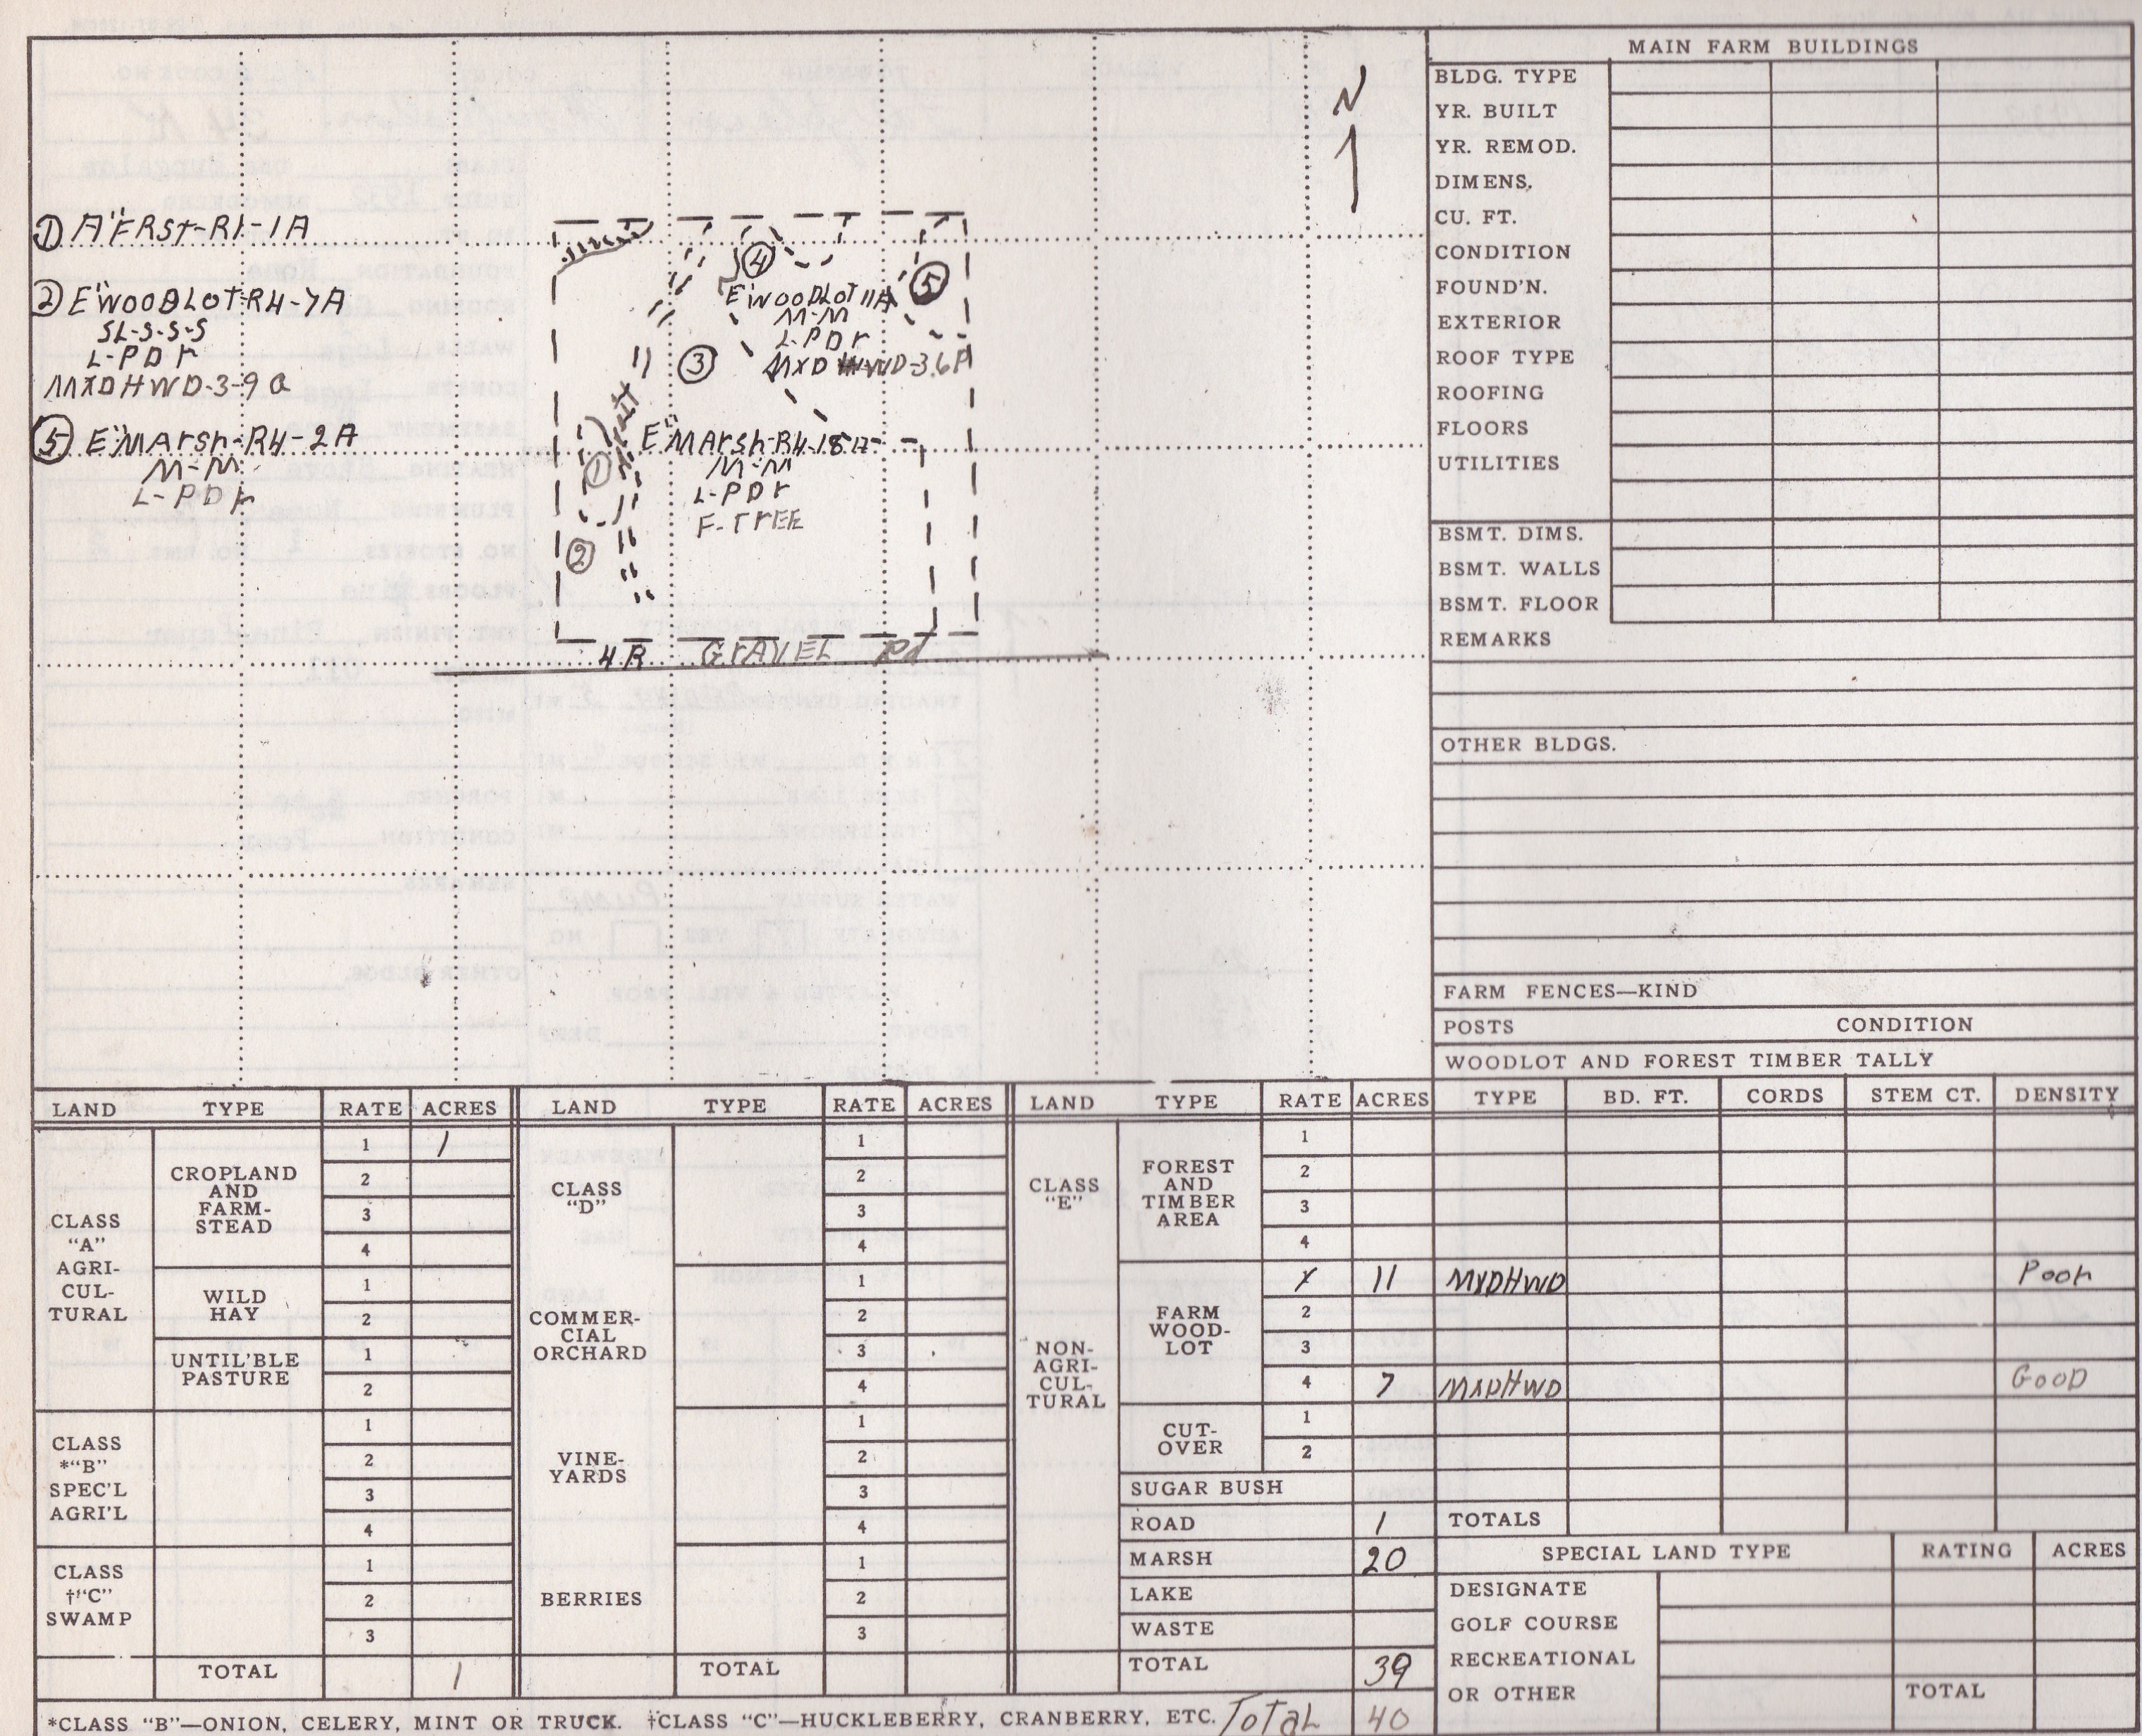 N
① A"FRST-R1-1A
② E"WOODLOT-R4-7A
SL-S-S-S
L-PDr
MXDHWD-3-9 a
⑤ E"MArsh-R4-2A
M-M
L-PDr
④
E"WOODLOT 11A
M-M
L-PDr
MXD HWD-3.6P
⑤
③
E"MArsh-R4-18A
M-M
L-PDr
F-TrEE
①
②
4 R GrAVEL Rd
MAIN FARM BUILDINGS
BLDG. TYPE
YR. BUILT
YR. REMOD.
DIMENS.
CU. FT.
CONDITION
FOUND'N.
EXTERIOR
ROOF TYPE
ROOFING
FLOORS
UTILITIES
BSMT. DIMS.
BSMT. WALLS
BSMT. FLOOR
REMARKS
OTHER BLDGS.
FARM FENCES—KIND
POSTS CONDITION
WOODLOT AND FOREST TIMBER TALLY
TYPE BD. FT. CORDS STEM CT. DENSITY
MXDHWD Poor
MXDHWD GOOD
TOTALS
SPECIAL LAND TYPE RATING ACRES
DESIGNATE
GOLF COURSE
RECREATIONAL
OR OTHER
TOTAL
LAND TYPE RATE ACRES
CLASS
"A"
AGRI-
CUL-
TURAL
CROPLAND
AND
FARM-
STEAD
1 1
2
3
4
WILD
HAY
1
2
UNTIL'BLE
PASTURE
1
2
CLASS
*"B"
SPEC'L
AGRI'L
1
2
3
4
CLASS
†"C"
SWAMP
1
2
3
TOTAL 1
LAND TYPE RATE ACRES
CLASS
"D"
1
2
3
4
COMMER-
CIAL
ORCHARD
1
2
3
4
VINE-
YARDS
1
2
3
4
BERRIES
1
2
3
TOTAL
LAND TYPE RATE ACRES
CLASS
"E"
NON-
AGRI-
CUL-
TURAL
FOREST
AND
TIMBER
AREA
1
2
3
4
FARM
WOOD-
LOT
1 11
2
3
4 7
CUT-
OVER
1
2
SUGAR BUSH
ROAD 1
MARSH 20
LAKE
WASTE
TOTAL 39
*CLASS "B"—ONION, CELERY, MINT OR TRUCK. †CLASS "C"—HUCKLEBERRY, CRANBERRY, ETC. Total 40